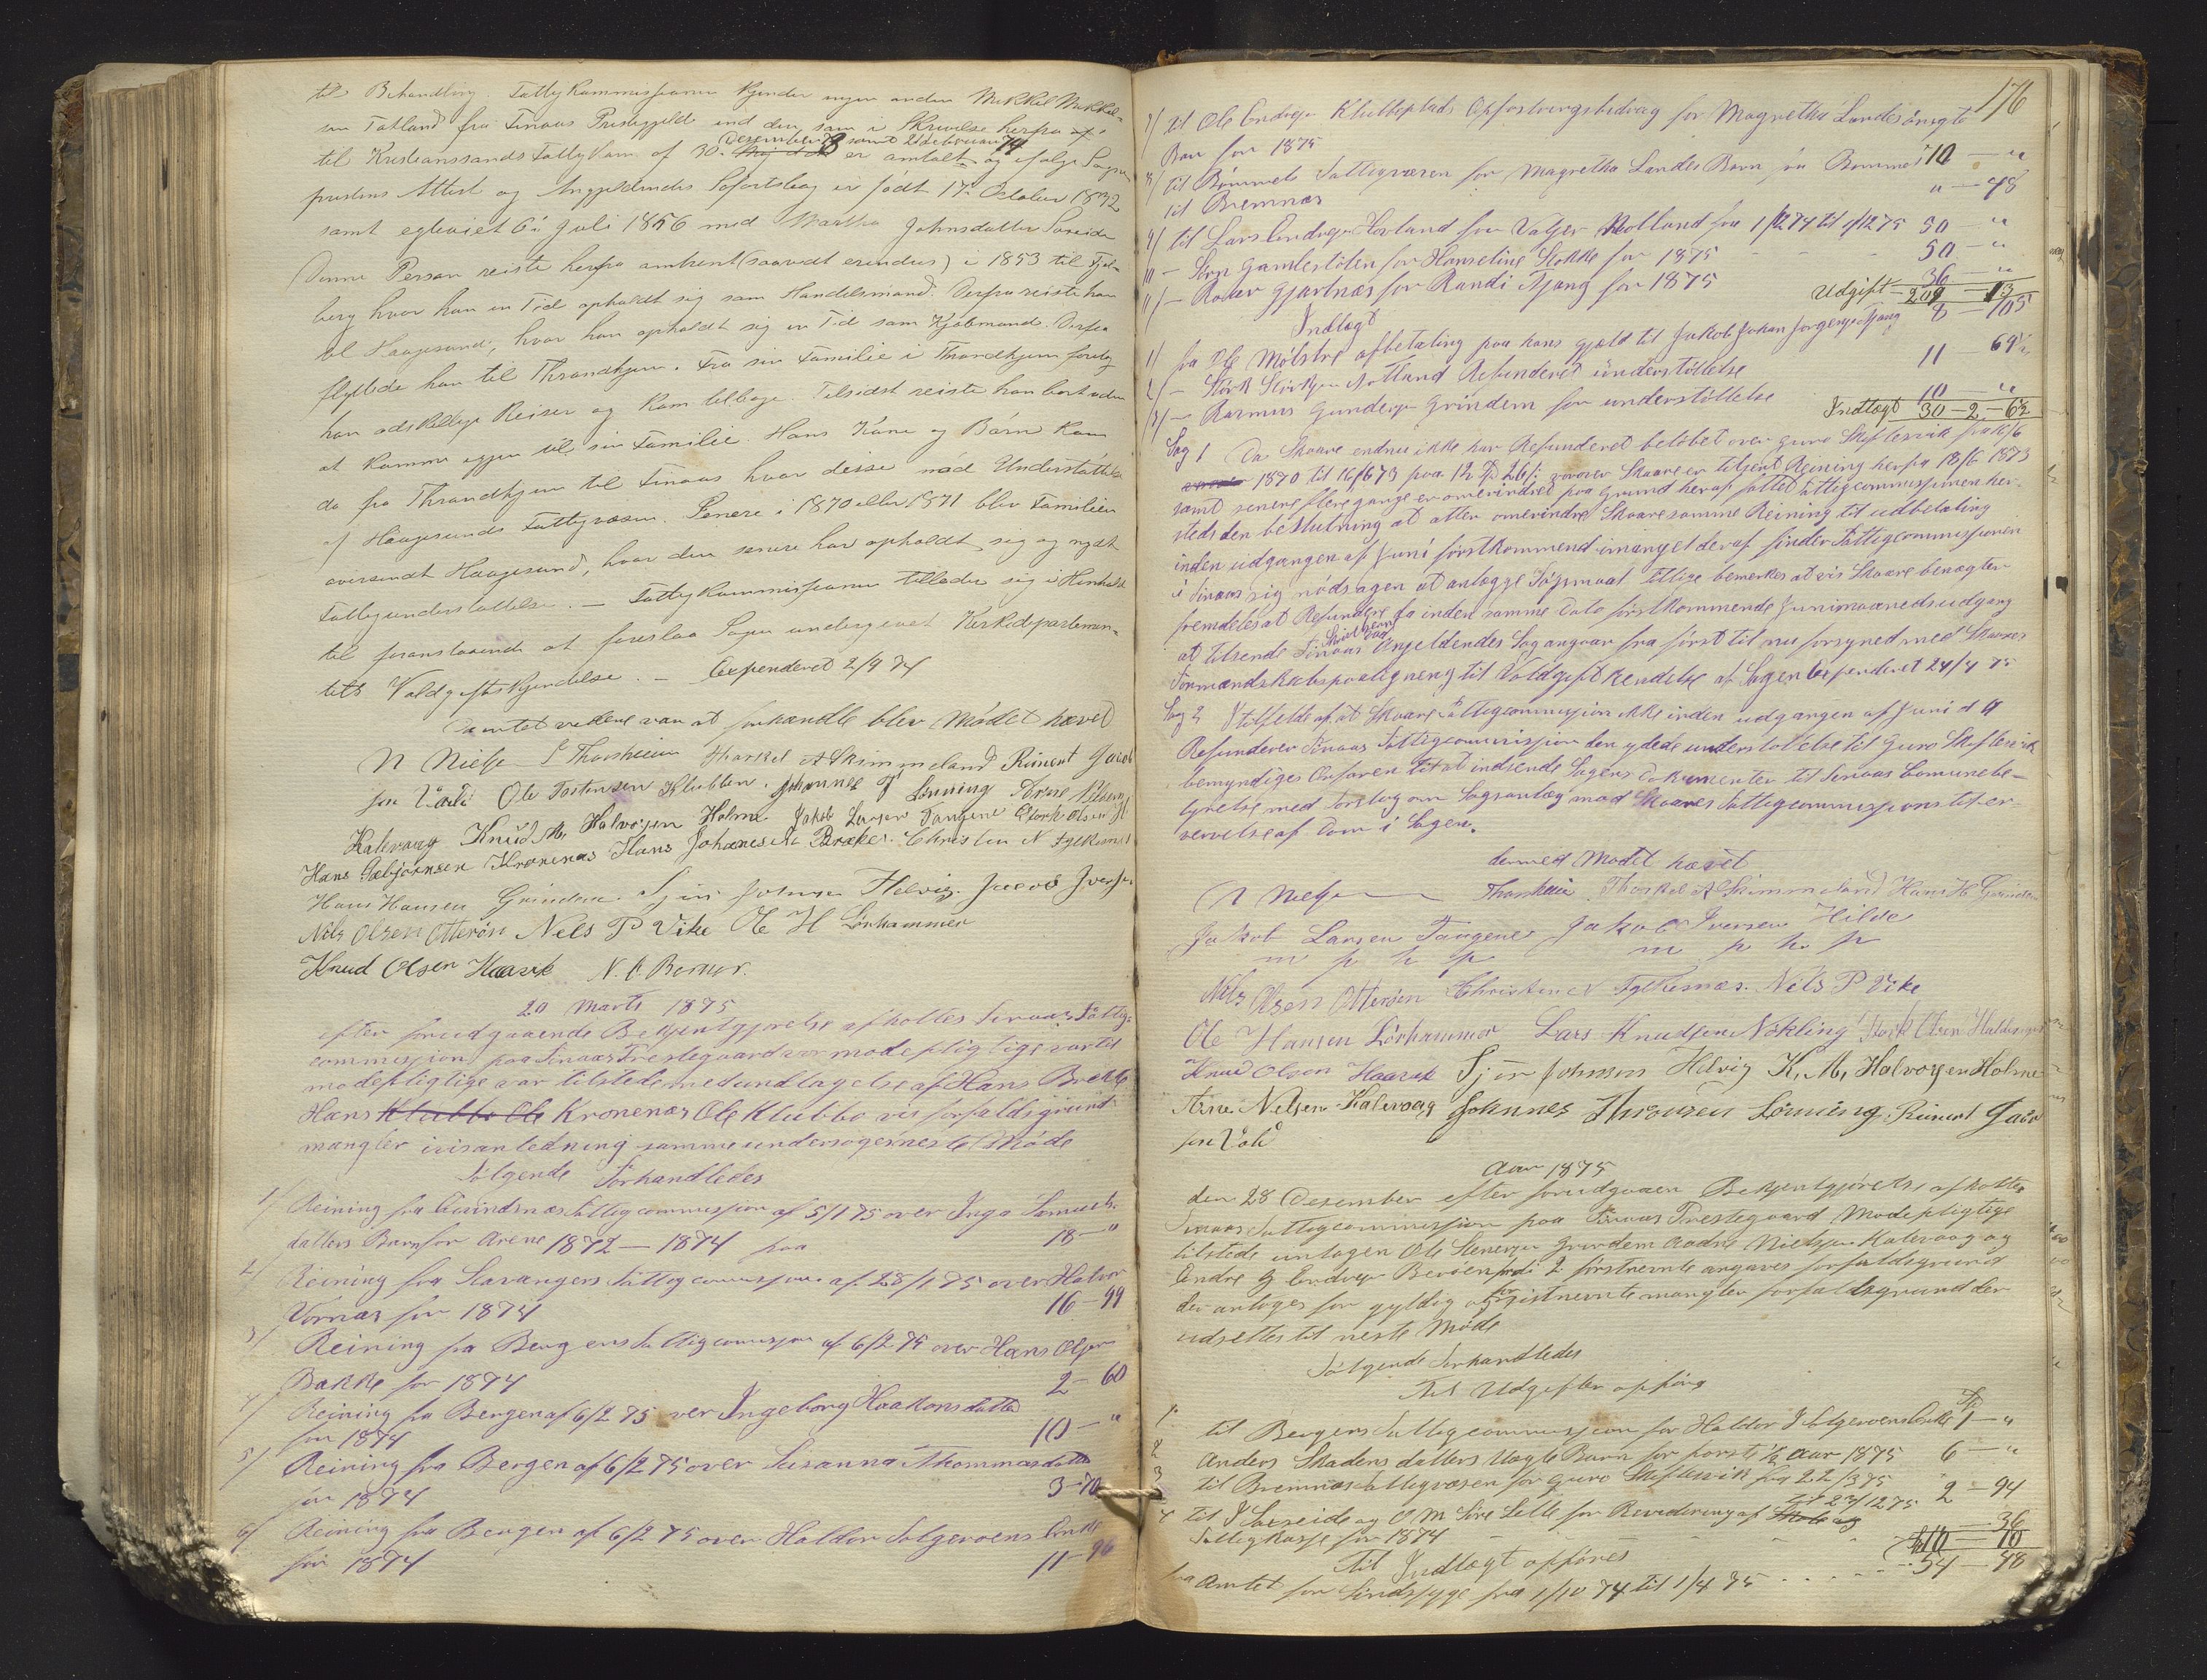 til Behandling. Fattigkommissionen kjender ingen anden Mikkel Mikkel-
sen Totland fra Finaas Prestegjeld end den, som i Skrivelse herfra
til Kristianssands Fattigvæsen af 30. Desember 73 samt 2 Februar 74 er omtalt og ifølge Sogne-
prestens Attest og Angjeldendes Sofartsbog er født 17de Octobur 1832
samt egteviet 6te Juli 1856 med Martha Johnsdatter Særeide
Denne Person reiste herfra omtrent (saavidt erindres) i 1853 til Fjel-
berg hvor han en Tid opholdt sig som Handelsmand. Derfra reiste han
til Haugesund, hvor han opholdt sig en Tid som Kjøbmand. Derfra
flyttede han til Throndhjem. Fra sin Familie i Throndhjem foretog
han adskillige Reiser og kom tilbage. Tilsidst reiste han bort uden
at komme igjen til sin Familie. Hans Kone og Børn kom
da fra Throndhjem til Finaas hvor disse nød Understøttelse
af Haugesunds Fattigvæsen. Senere i 1870 eller 1871 blev Familien
oversendt Haugesund, hvor den senere har opholdt sig og nydt
Fattigunderstøttelse. — Fattigkommissionen tillader sig i Henhold
til foranstaaende at foreslaa Sagen undergivet Kirkedepartemen-
tets Voldgiftskjendelse. — Expenderet 2/9 74
Da intet videre var at forhandle blev Mödet hævet
N Nielsen S Thorsheim Thorkel A Skimmeland Rimert Jacob
sen Våle Ole Tostensen Klubben. Johannes T Lönning Arne Nilsen
Kalevaag Knud M. Halvorsen Holme Jakob Larsen Tangene Stork Olsen H
Hans Gabjörnsen Kronenæs Hans Johanes Brække. Christen N Fylkesnes
Hans Hansen Grindem. Sjur Johnsen Helvig. Jacob Iversen
Nils Olsen Otterøn Nels P Vike Ole H Sörhammer
Knud Olsen Haavik N. A. Berner.
20 Marts 1875
efter forudgaaende Bekjentgjörelse afholtes Finaas Fattig-
commisjon paa Finaas Prestegaard vor mødepligtige var til
mødepligtige var tilstede med undtagelse af Hans Brekke
Hans Klubbo Ole Kronenæs Ole Klubbo vis forfaldsgrund
mangler i vis anledning samme undersøgernes te Møde
følgende Forhandledes
1/ Reining fra Qvindnæs Fattigcommisjon af 5/1 75 over Inga Samuels-
datters Barn for Arene 1872 — 1874 paa 18 - "
2/ Reining fra Stavangers Fattigcommisjon af 28/1 75 over Halvor
Vornæs for 1874 16 - 99
3/ Reining fra Bergens Fattigcomisjon af 6/2 75 over Hans Olsen
Bakke for 1874 2 - 60
4/ Reining fra Bergen af 6/2 75 over Ingeborg Haakonsdatter
for 1874 10 - "
5/ Reining fra Bergen af 6/2 75 over Susanna Thommasdatter
for 1874 3 - 70
6/ Reining fra Bergen af 6/2 75 over Haldor Folgerøens Enke
for 1874 11 - 96
176
7/ til Ole Endresen Klubbeplads Opfostringsbidrag for Magretha Landes uægte
Ban for 1875 10 — "
8/ til Bömmels Fattigvæsen for Magretha Landes Barn fra Bommel
til Bremnæs " — 48
9/ til Lars Endresen Hovland for Valger Notland fra 1/12 74 til 1/12 75 50 "
10 — Sörn Gamlestölen for Hanseline Stokke for 1875 50 — "
11/ — Roder Gjartnæs for Randi Tjong for 1875 36 — "
Udgift 209 — 13
Indtægt
1/ fra Ole Mølstre afbetaling paa hans gjæld til Jakob Johan Jorgensen Tjong 8 — 105
2/ — Störk Störksen Notland Refunderet understöttelse 11 69½
3/ — Rasmus Gundersen Grindem for understöttelse 10 "
Indtægt 30 — 2 — 6½
Sag 1 Da Skaare endnu ikke har Refunderet belöbet over Guro Skiftesvik fra 16/6
1870 til 16/6 73 paa 12 Sp 26 s; hvorover Skaare er tilsent Reining herfra 18/6 1873
samt senere flere gange er omerindret paa grund heraf fattet Fattigcommisjonen her-
steds den beslutning at atter omerindre Skaare samme Reining til udbetaling
inden udgangen af Juni förstkommend i mangel deraf finder Fattigcommisjonen
i Finaas sig nödsagen at anlægge Sögsmaal Tillige bemerkes at vis Skaare benægter
fremdeles at Refundere da inden samme Dato förstkommende Juni maaneds udgang
at tilsende Finaas Angjeldendes Sog angaar fra först til nu forsyned med Skaares
Formandskabs paategneng til Voldgift kendelse af Sagen Expenderet 24/4 75
Sag 2 I tilfelde af at Skaare Fattigcommisjon ikke inden udgangen af Juni d A
Refunderer Finaas Fattigcommisjon den ydede understöttelse til Guro Skiftesvik
bemyndiges Ordforen til at indsende Sagens Dokumenter til Finaas Comunebe-
tyrelse med forslag om Sagsanlæg mod Skaares Fattigcommisjons til er-
vervelse af Dom i Sagen.
dermed Mødet hævet
N Nielsen Thorsheim Thorkel A Skimmeland Hans H Grindem
Jakob Larsen Tangene Jakob Iversen Hilde
m p h p m p h p
Nils Olsen Otterøen Christen N Fylkesnæs. Nils P Vike
Ole Hansen Sörhammer Lars Knudsen Nökling Stork Olsen Haldorsen
Knud Olsen Haavik Sjur Johnsen Helvig K. M. Halvorsen Holme
Arne Nelsen Kalevaag Johannes Thronsen Lönning. Rimert Jacob
sen Våle
Aar 1875
den 28 Desember efter forudgaaen Bekjentgjörelse afholtes
Finaas Fattigcommisjon paa Finaas Prestegaard Mødepligtige
tilstede untagen Ole Stenersen Grindem Aadne Nielsen Kalevaag og
Andre G Endresen Beröen fordi 2 förstnevnte angaves forfaldsgrund
der antoges for gyldig og for sistnevnte mangler forfaldsgrund der
udsettes til neste Møde
Fölgende Forhandledes
Til Udgifter opföres
Sp
1. til Bergens Fattigcommisjon for Haldor Folgerøens Enke 1 — "
2 Anders Skadens datters Uegte Barn for förste ½ Aar 1875 6 — "
3 til Bremnæs Fattigvæsen for Guro Skiftesvik fra 22/3 75
til 23/12 75 2 — 94
4 til J Særeide og O M Söre Lelle for Revidering af
Fattigkasse for 1874 36
Sp 10 — 10
Til Indtægt opföres
fra Amtet for Sindssyge fra 1/10 74 til 1/4 75 . . . . . 54 — 48